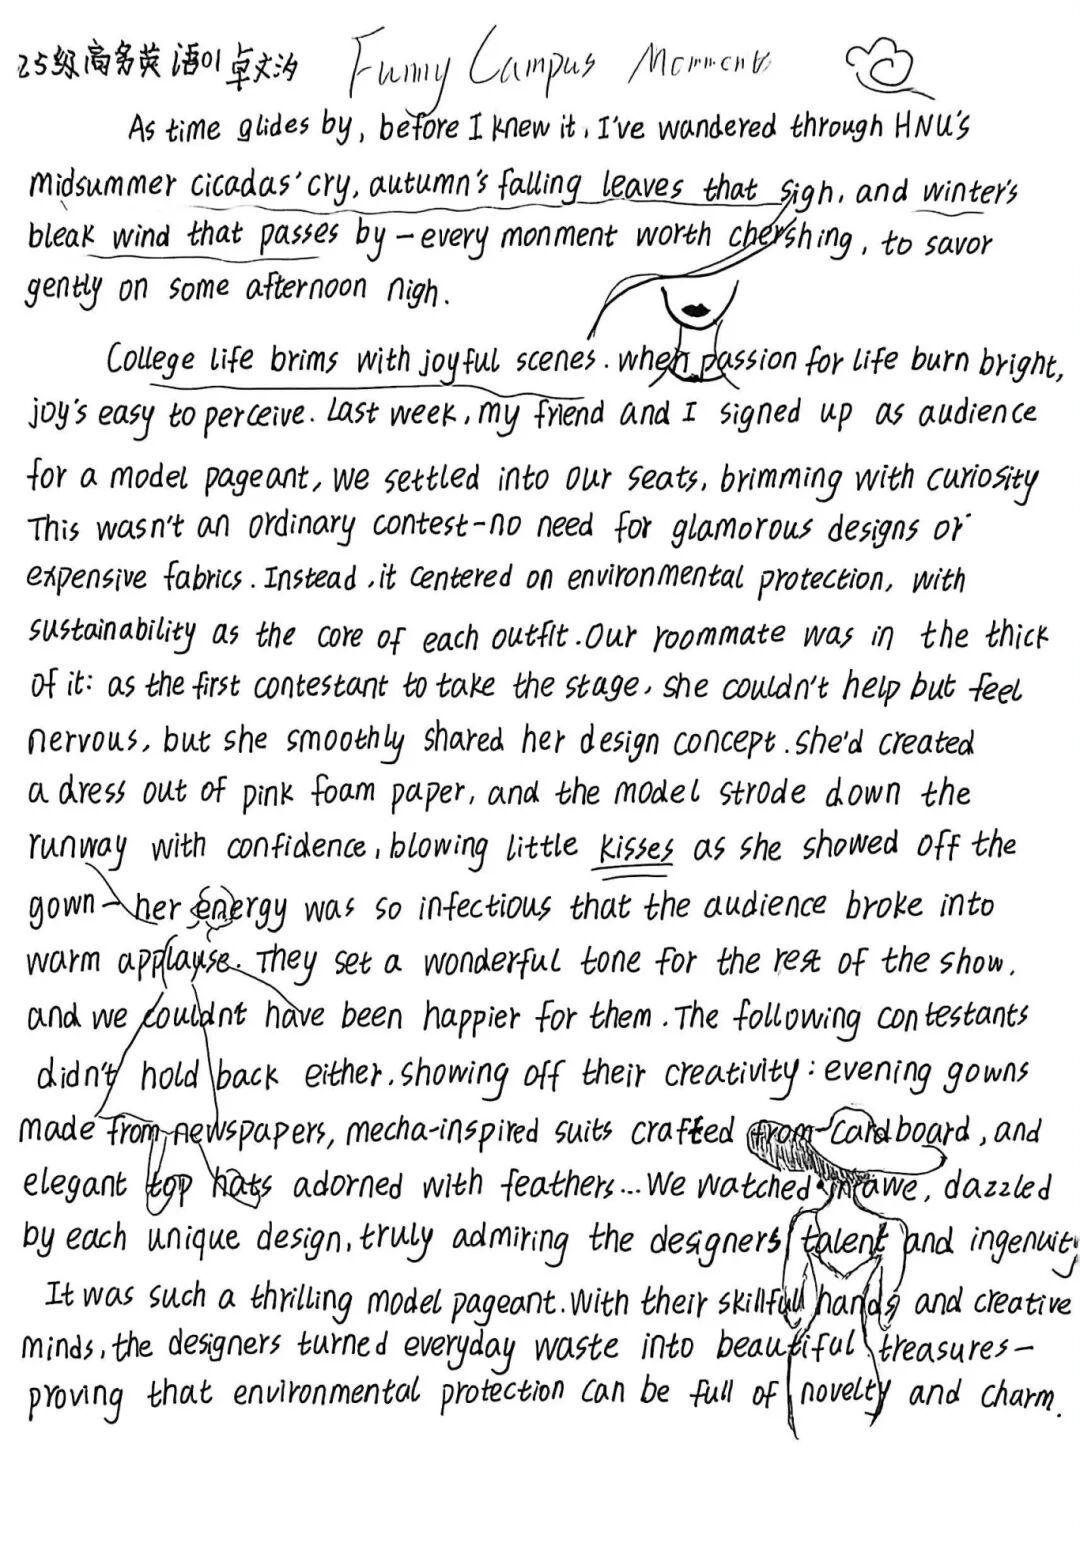 25级商务英语01卓文汐 Funny Campus Moments
As time glides by, before I knew it, I've wandered through HNU's
midsummer cicadas' cry, autumn's falling leaves that sigh, and winter's
bleak wind that passes by – every monment worth chershing, to savor
gently on some afternoon nigh.
College life brims with joyful scenes. when passion for life burn bright,
joy's easy to perceive. Last week, my friend and I signed up as audience
for a model pageant, we settled into our seats, brimming with curiosity
This wasn't an ordinary contest-no need for glamorous designs or
expensive fabrics. Instead, it centered on environmental protection, with
sustainability as the core of each outfit. Our roommate was in the thick
of it: as the first contestant to take the stage, she couldn't help but feel
nervous, but she smoothly shared her design concept. she'd created
a dress out of pink foam paper, and the model strode down the
runway with confidence, blowing little kisses as she showed off the
gown – her energy was so infectious that the audience broke into
warm applause. They set a wonderful tone for the rest of the show,
and we couldnt have been happier for them. The following contestants
didn't hold back either, showing off their creativity: evening gowns
made from newspapers, mecha-inspired suits crafted from cardboard, and
elegant top hats adorned with feathers... We watched in awe, dazzled
by each unique design, truly admiring the designers' talent and ingenuity
It was such a thrilling model pageant. With their skillfull hands and creative
minds, the designers turned everyday waste into beautiful treasures –
proving that environmental protection can be full of novelty and charm.